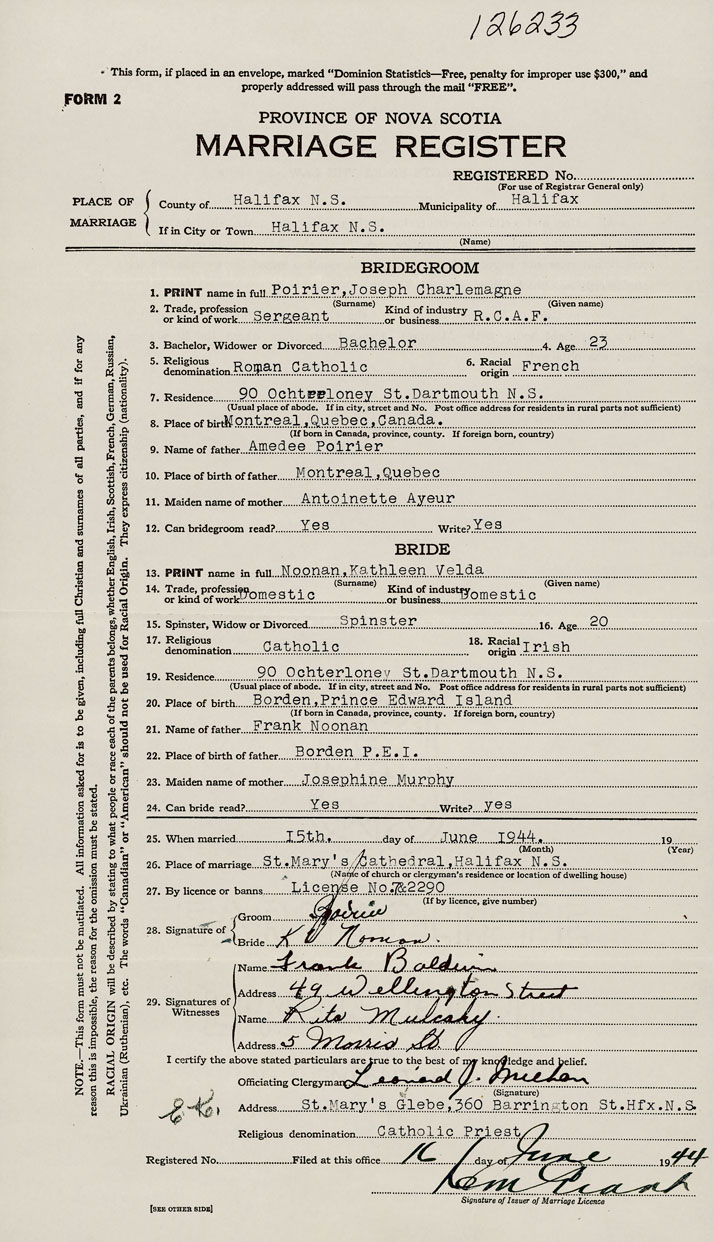 126233
This form, if placed in an envelope, marked "Dominion Statistics—Free, penalty for improper use $300," and
properly addressed will pass through the mail "FREE".
FORM 2
PROVINCE OF NOVA SCOTIA
MARRIAGE REGISTER
REGISTERED No.
(For use of Registrar General only)
PLACE OF MARRIAGE
County of Halifax N.S. Municipality of Halifax
If in City or Town Halifax N.S.
(Name)
BRIDEGROOM
1. PRINT name in full Poirier,Joseph Charlemagne
(Surname) (Given name)
2. Trade, profession or kind of work Sergeant Kind of industry or business R.C.A.F.
3. Bachelor, Widower or Divorced Bachelor 4. Age 23
5. Religious denomination Roman Catholic 6. Racial origin French
7. Residence 90 Ochterloney St.Dartmouth N.S.
(Usual place of abode. If in city, street and No. Post office address for residents in rural parts not sufficient)
8. Place of birth Montreal,Quebec,Canada.
(If born in Canada, province, county. If foreign born, country)
9. Name of father Amedee Poirier
10. Place of birth of father Montreal,Quebec
11. Maiden name of mother Antoinette Ayeur
12. Can bridegroom read? Yes Write? Yes
BRIDE
13. PRINT name in full Noonan,Kathleen Velda
(Surname) (Given name)
14. Trade, profession or kind of work Domestic Kind of industry or business Domestic
15. Spinster, Widow or Divorced Spinster 16. Age 20
17. Religious denomination Catholic 18. Racial origin Irish
19. Residence 90 Ochterloney St.Dartmouth N.S.
(Usual place of abode. If in city, street and No. Post office address for residents in rural parts not sufficient)
20. Place of birth Borden,Prince Edward Island
(If born in Canada, province, county. If foreign born, country)
21. Name of father Frank Noonan
22. Place of birth of father Borden P.E.I.
23. Maiden name of mother Josephine Murphy
24. Can bride read? Yes Write? yes
25. When married 15th. day of June 1944. 19
(Month) (Year)
26. Place of marriage St.Mary's Cathedral,Halifax N.S.
(Name of church or clergyman's residence or location of dwelling house)
27. By licence or banns License No.
(If by licence, give number)
28. Signature of
Groom Poirier
Bride K V Noonan.
29. Signatures of Witnesses
Name Frank Baldwin
Address 49 Wellington Street
Name Rita Mulcahy.
Address 5 Morris St
I certify the above stated particulars are true to the best of my knowledge and belief.
Officiating Clergyman Leonard J. Meehan
(Signature)
Address St.Mary's Glebe,360 Barrington St.Hfx.N.S.
Religious denomination Catholic Priest
Registered No. Filed at this office 16 day of June 1944
Signature of Issuer of Marriage Licence
[SEE OTHER SIDE]
NOTE.—This form must not be mutilated. All information asked for is to be given, including full Christian and surnames of all parties, and if for any
reason this is impossible, the reason for the omission must be stated.
RACIAL ORIGIN will be described by stating to what people or race each of the parents belongs, whether English, Irish, Scottish, French, German, Russian,
Ukrainian (Ruthenian), etc. The words "Canadian" or "American" should not be used for Racial Origin. They express citizenship (nationality).